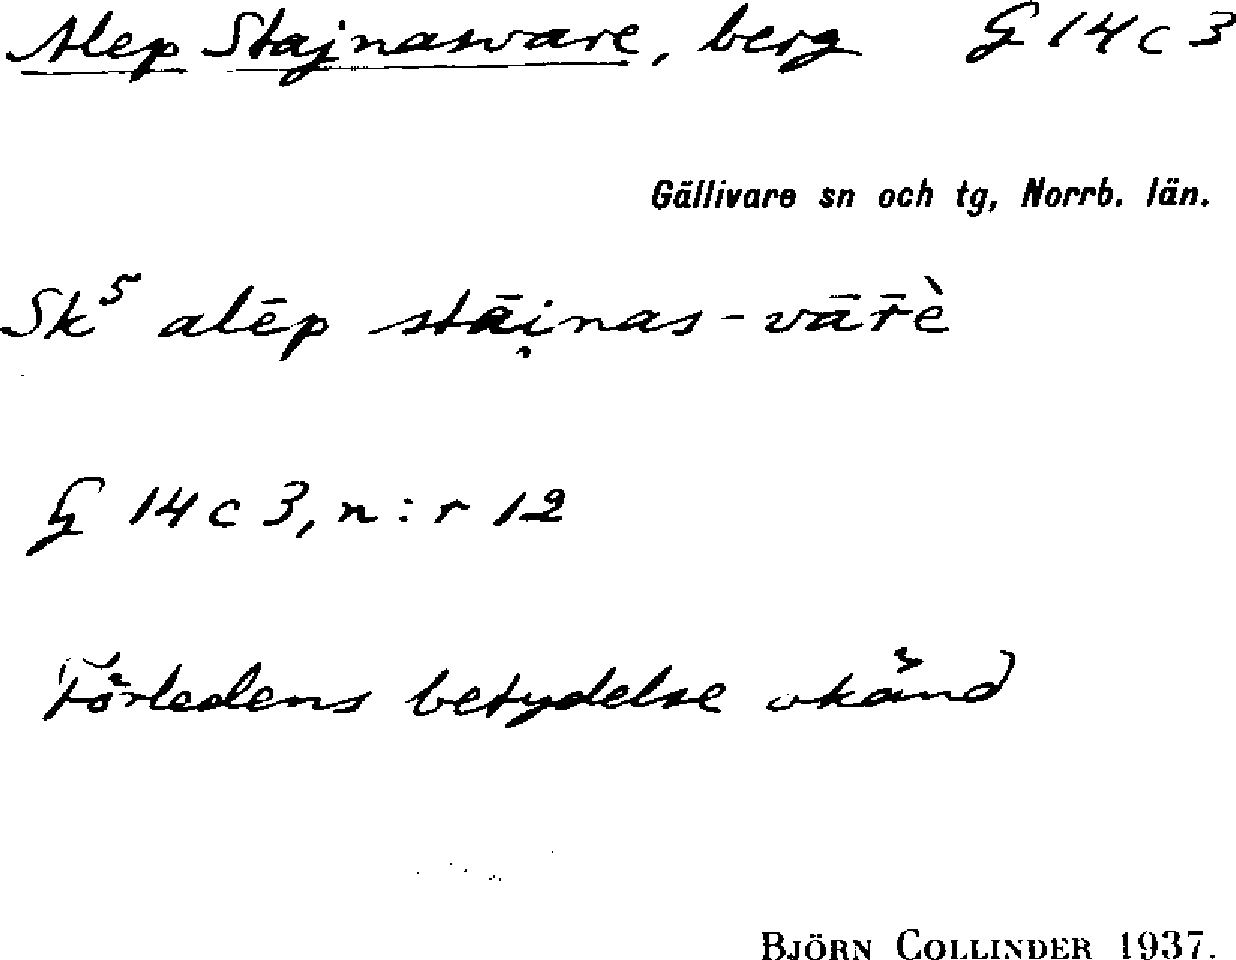 Alep Stajnasvare, berg G 14 c 3
Gällivare sn och tg, Norrb. län.
Sk⁵ alēp stāi̮nas-vār̄è
G 14 c 3, n:r 12
Förledens betydelse okänd
BJÖRN COLLINDER 1937.